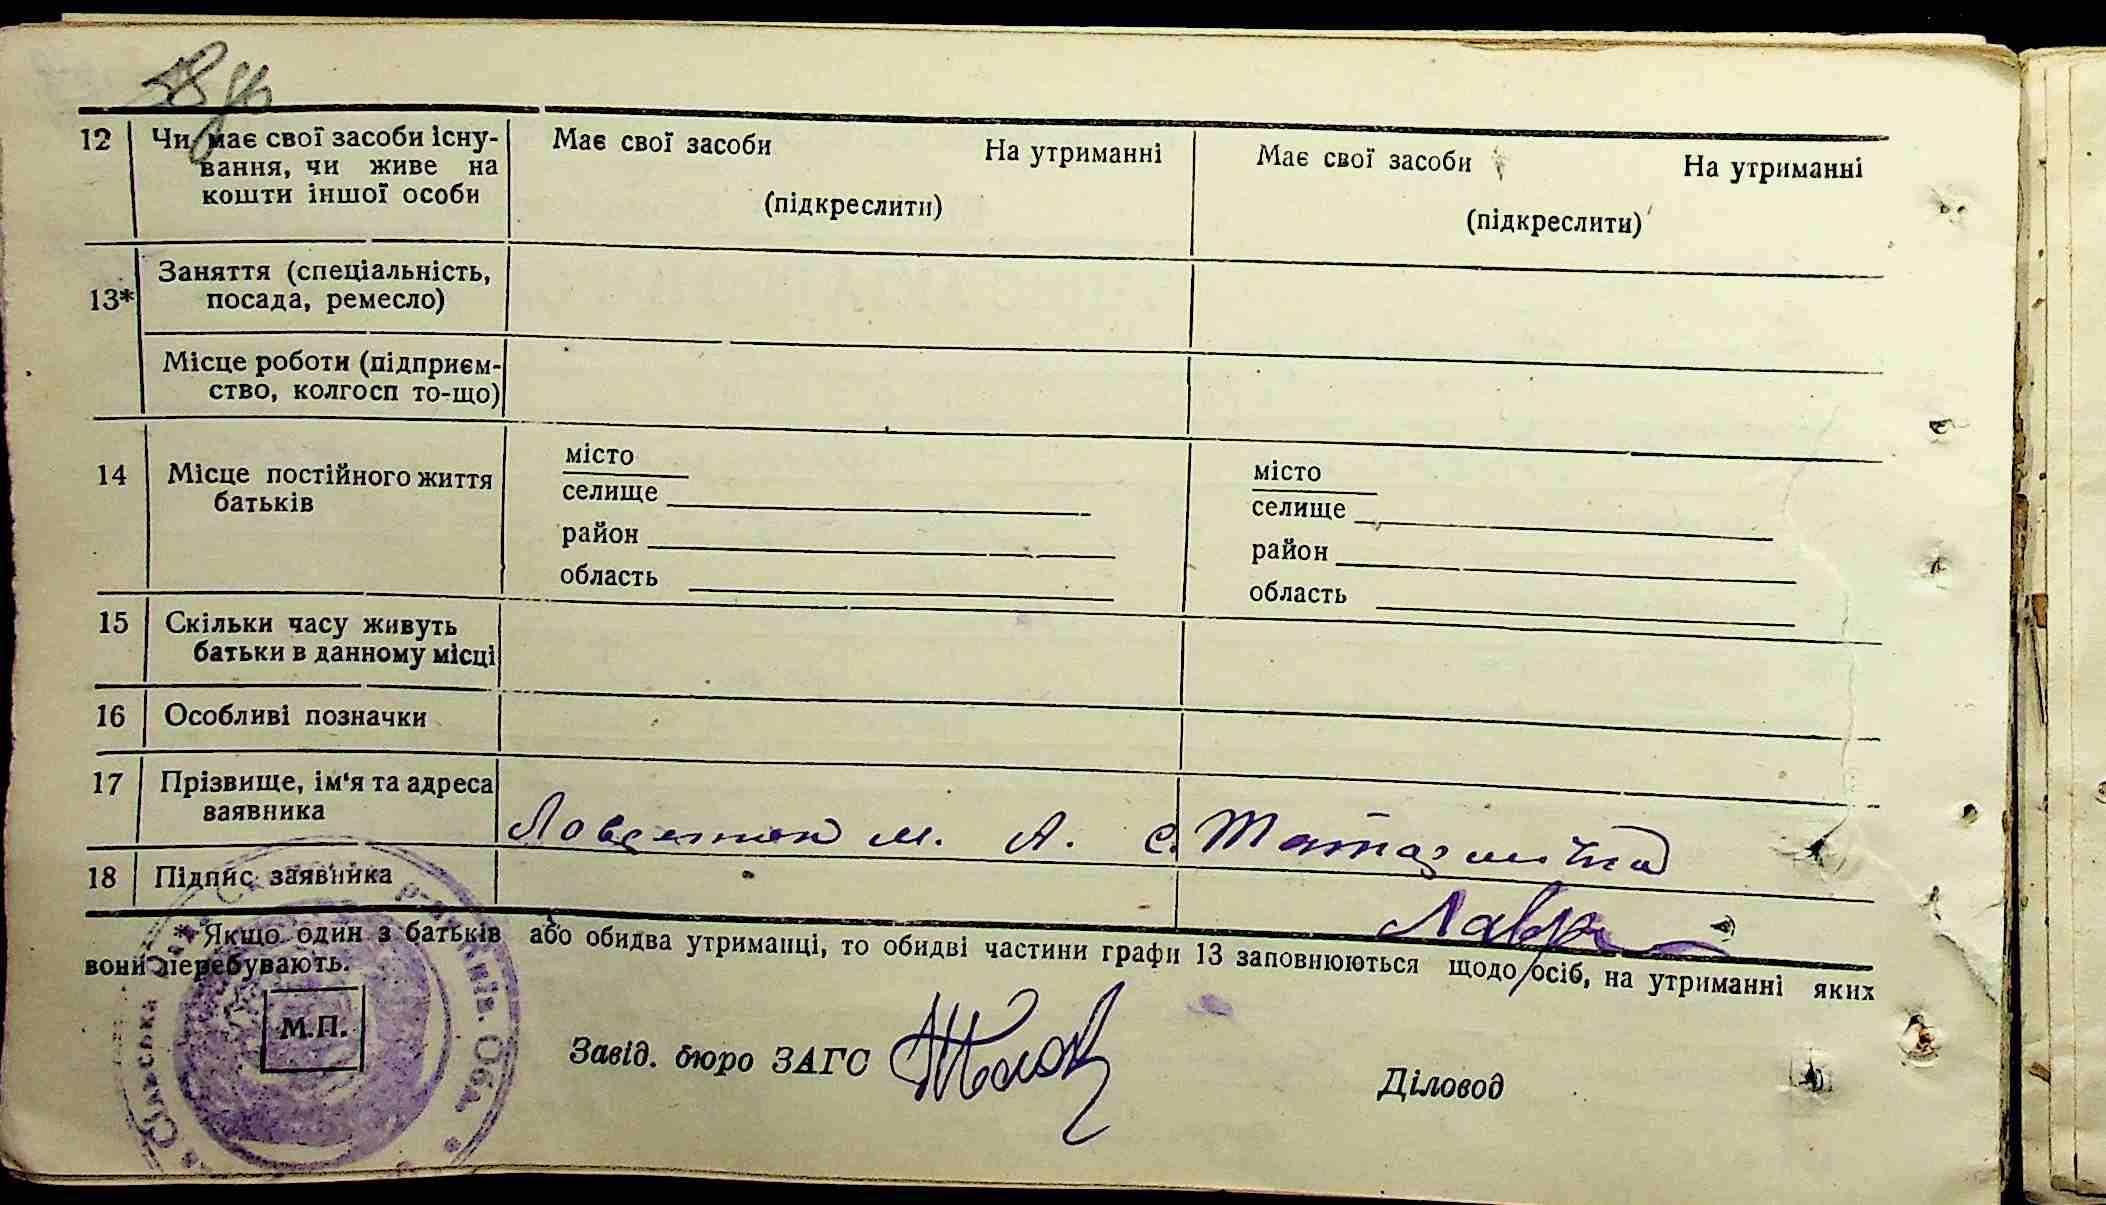 58
12 Чи має свої засоби існу- Має свої засоби На утриманні Має свої засоби На утриманні
вання, чи живе на
кошти іншої особи (підкреслити) (підкреслити)
13* Заняття (спеціальність,
посада, ремесло)
Місце роботи (підприєм-
ство, колгосп то-що)
14 Місце постійного життя
батьків
місто
селище
район
область
місто
селище
район
область
15 Скільки часу живуть
батьки в данному місці
16 Особливі позначки
17 Прізвище, ім'я та адреса
заявника
М. А. с.
18 Підпис заявника
* Якщо один з батьків або обидва утриманці, то обидві частини графи 13 заповнюються щодо осіб, на утриманні яких
вони перебувають.
М.П.
Завід. бюро ЗАГС
Діловод
Сільська
Обл.